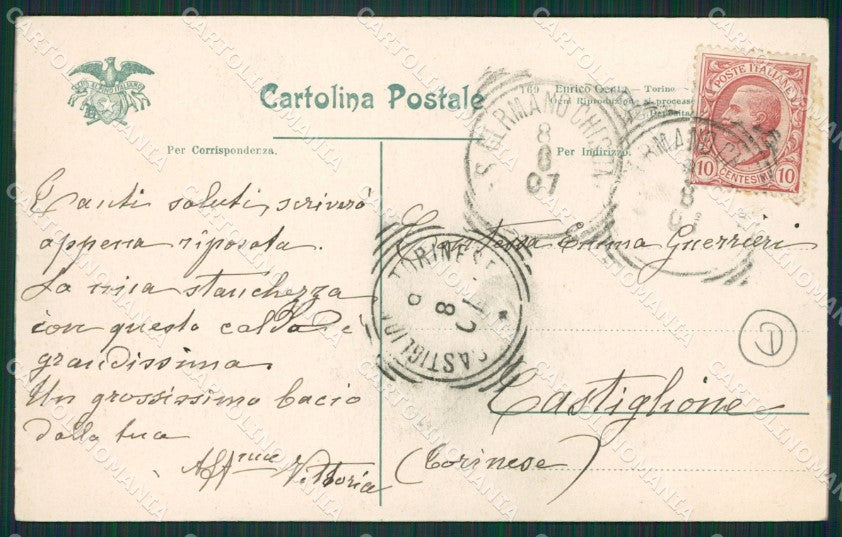 Cartolina Postale
169 Enrico Genta Torino
Per Corrispondenza.
Per Indirizzo.
POSTE ITALIANE
10 CENTESIMI 10
S. GERMANO CHISONE
8
8
07
GERMANO CHISONE
8
8
07
TORINESE
CASTIGLIONE
8
07
Tanti saluti, scriverò
appena riposata.
La mia stanchezza
con questo caldo è
grandissima
Un grossissimo bacio
dalla tua
Aff.ma Vittoria
Contessa Emma Guerrieri
Castiglione
(Torinese)
CARTOLINOMANIA